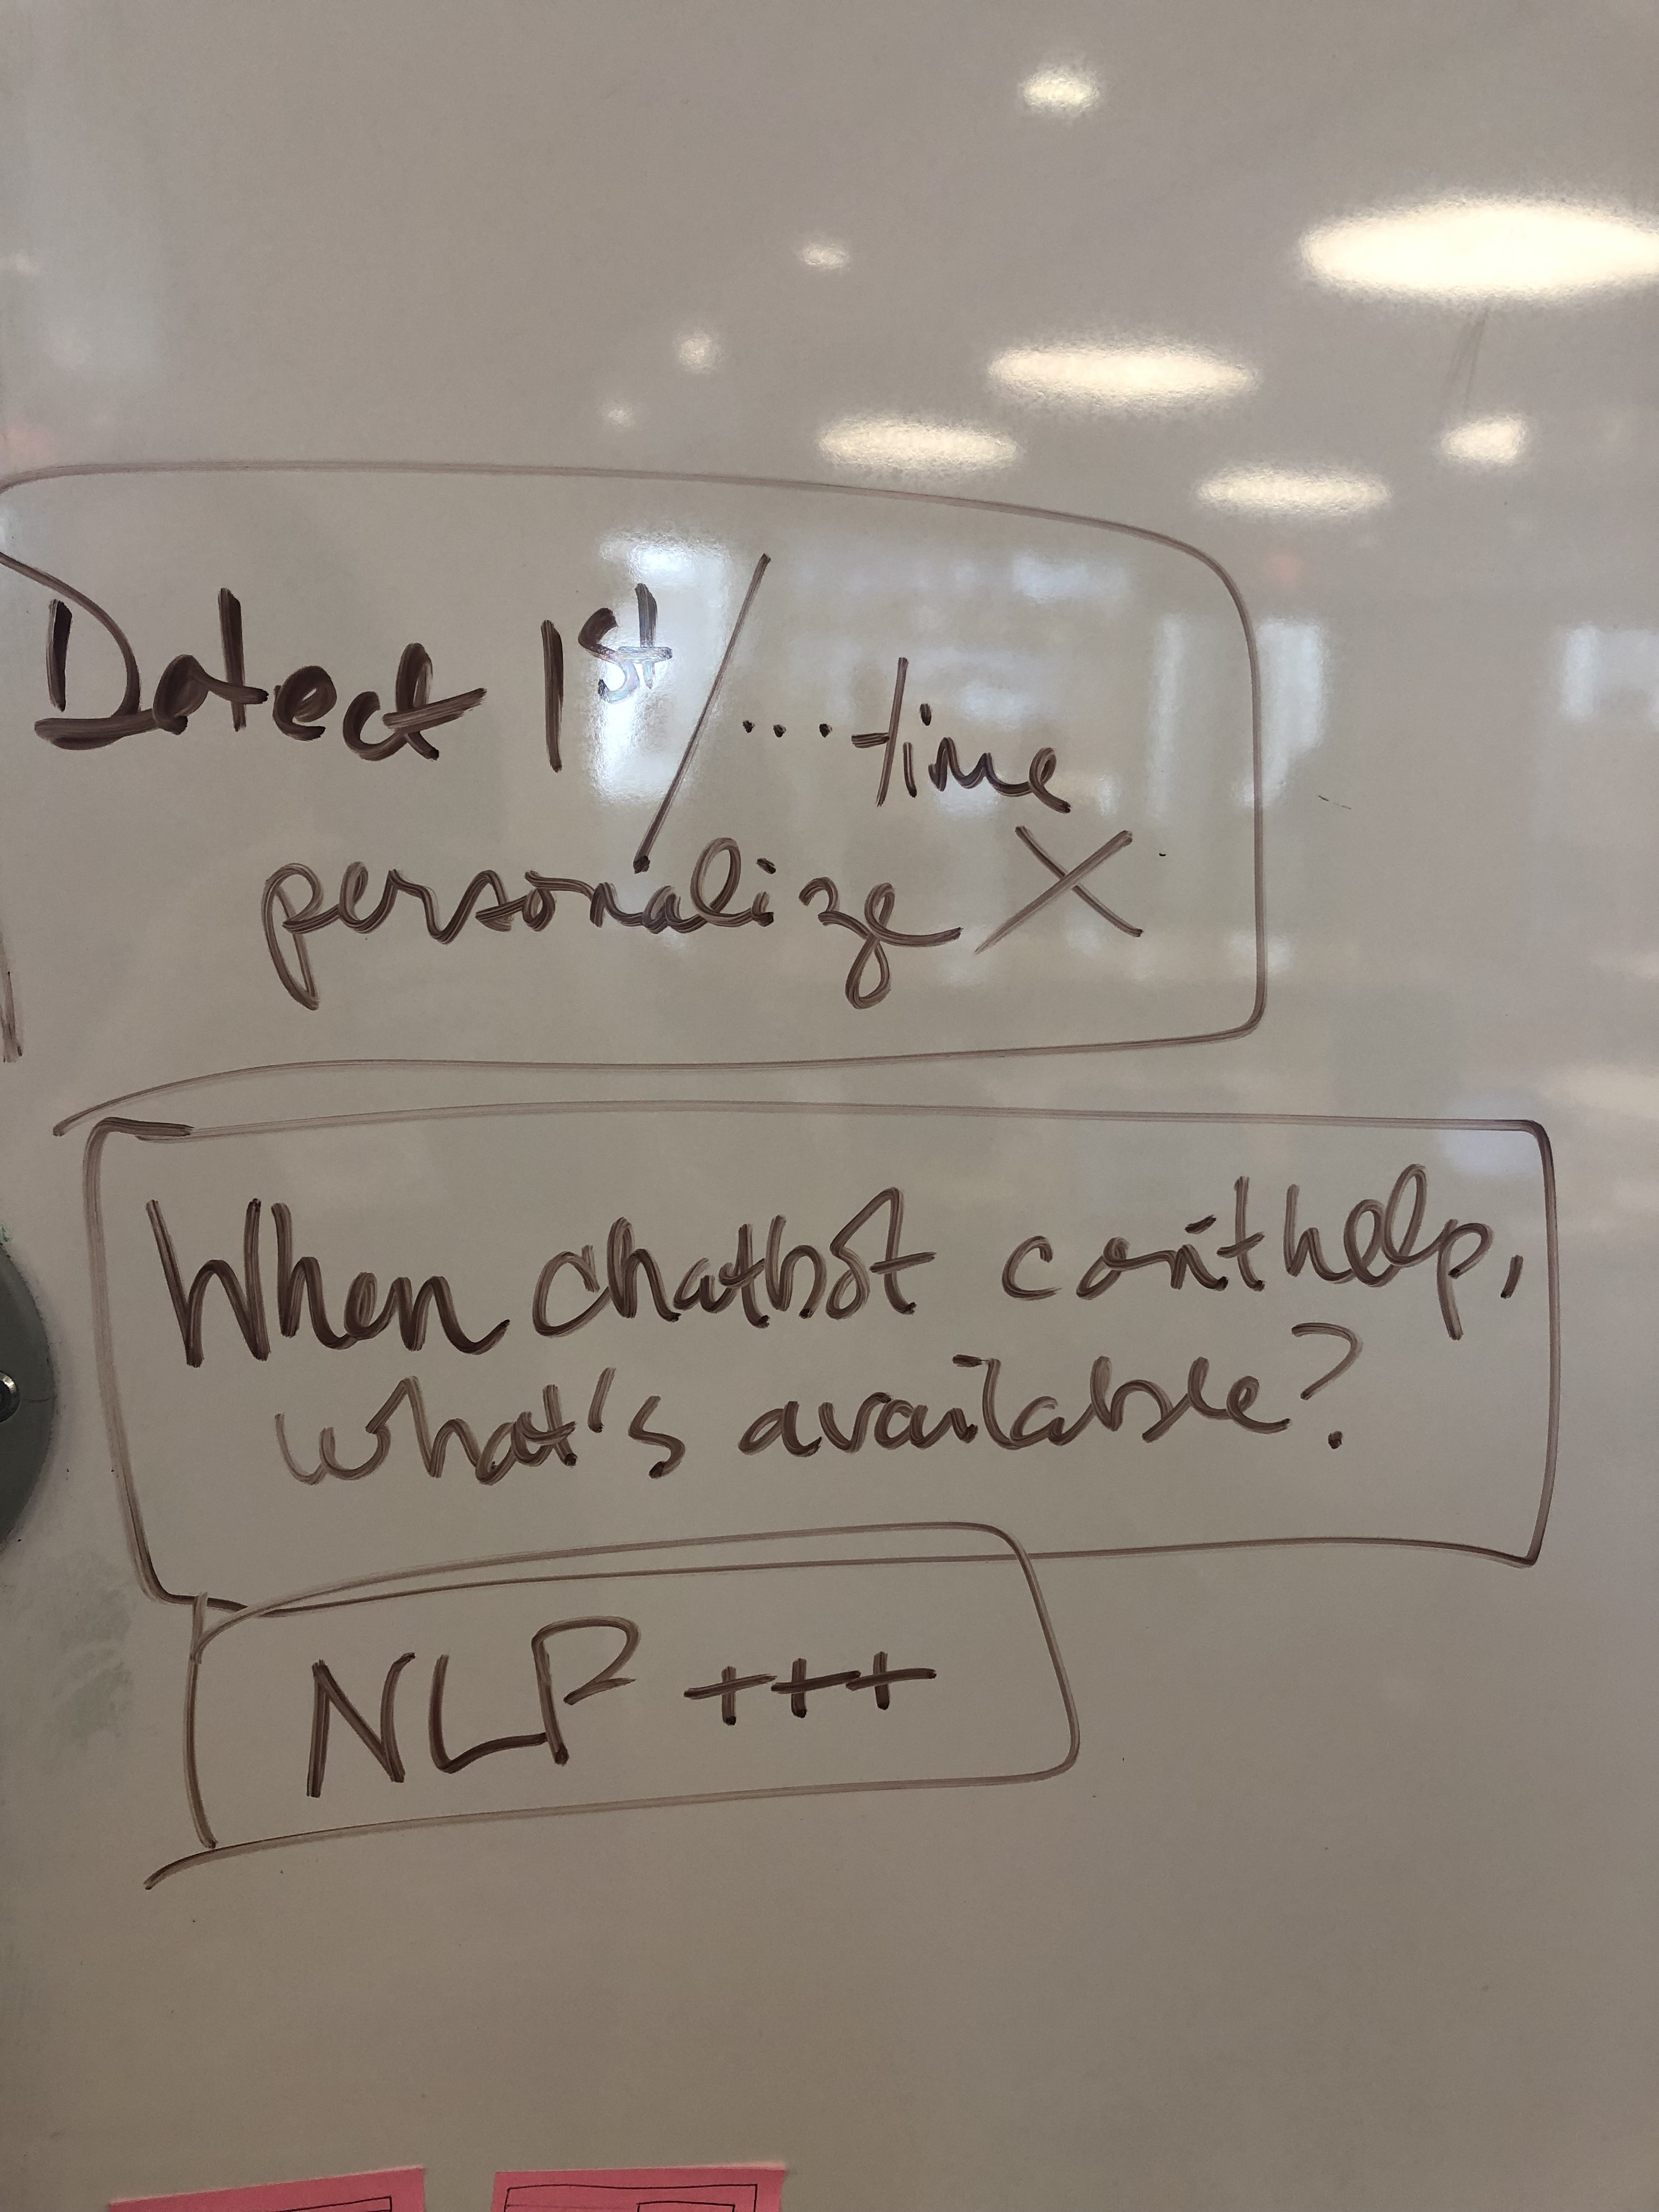 Detect 1st/...time
personalize X
When chatbot can't help,
what's available?
NLP +++